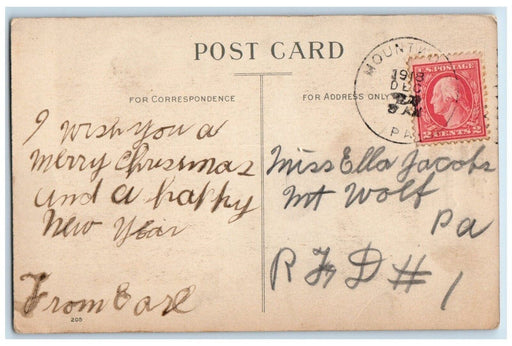 POST CARD
FOR CORRESPONDENCE
FOR ADDRESS ONLY
MOUNT
1918
DEC
PA
U.S. POSTAGE
2 CENTS 2
I wish you a
merry Chrissmas
and a happy
New Year
From Earl
Miss Ella Jacobs
Mt Wolf
Pa
R F D # 1
205